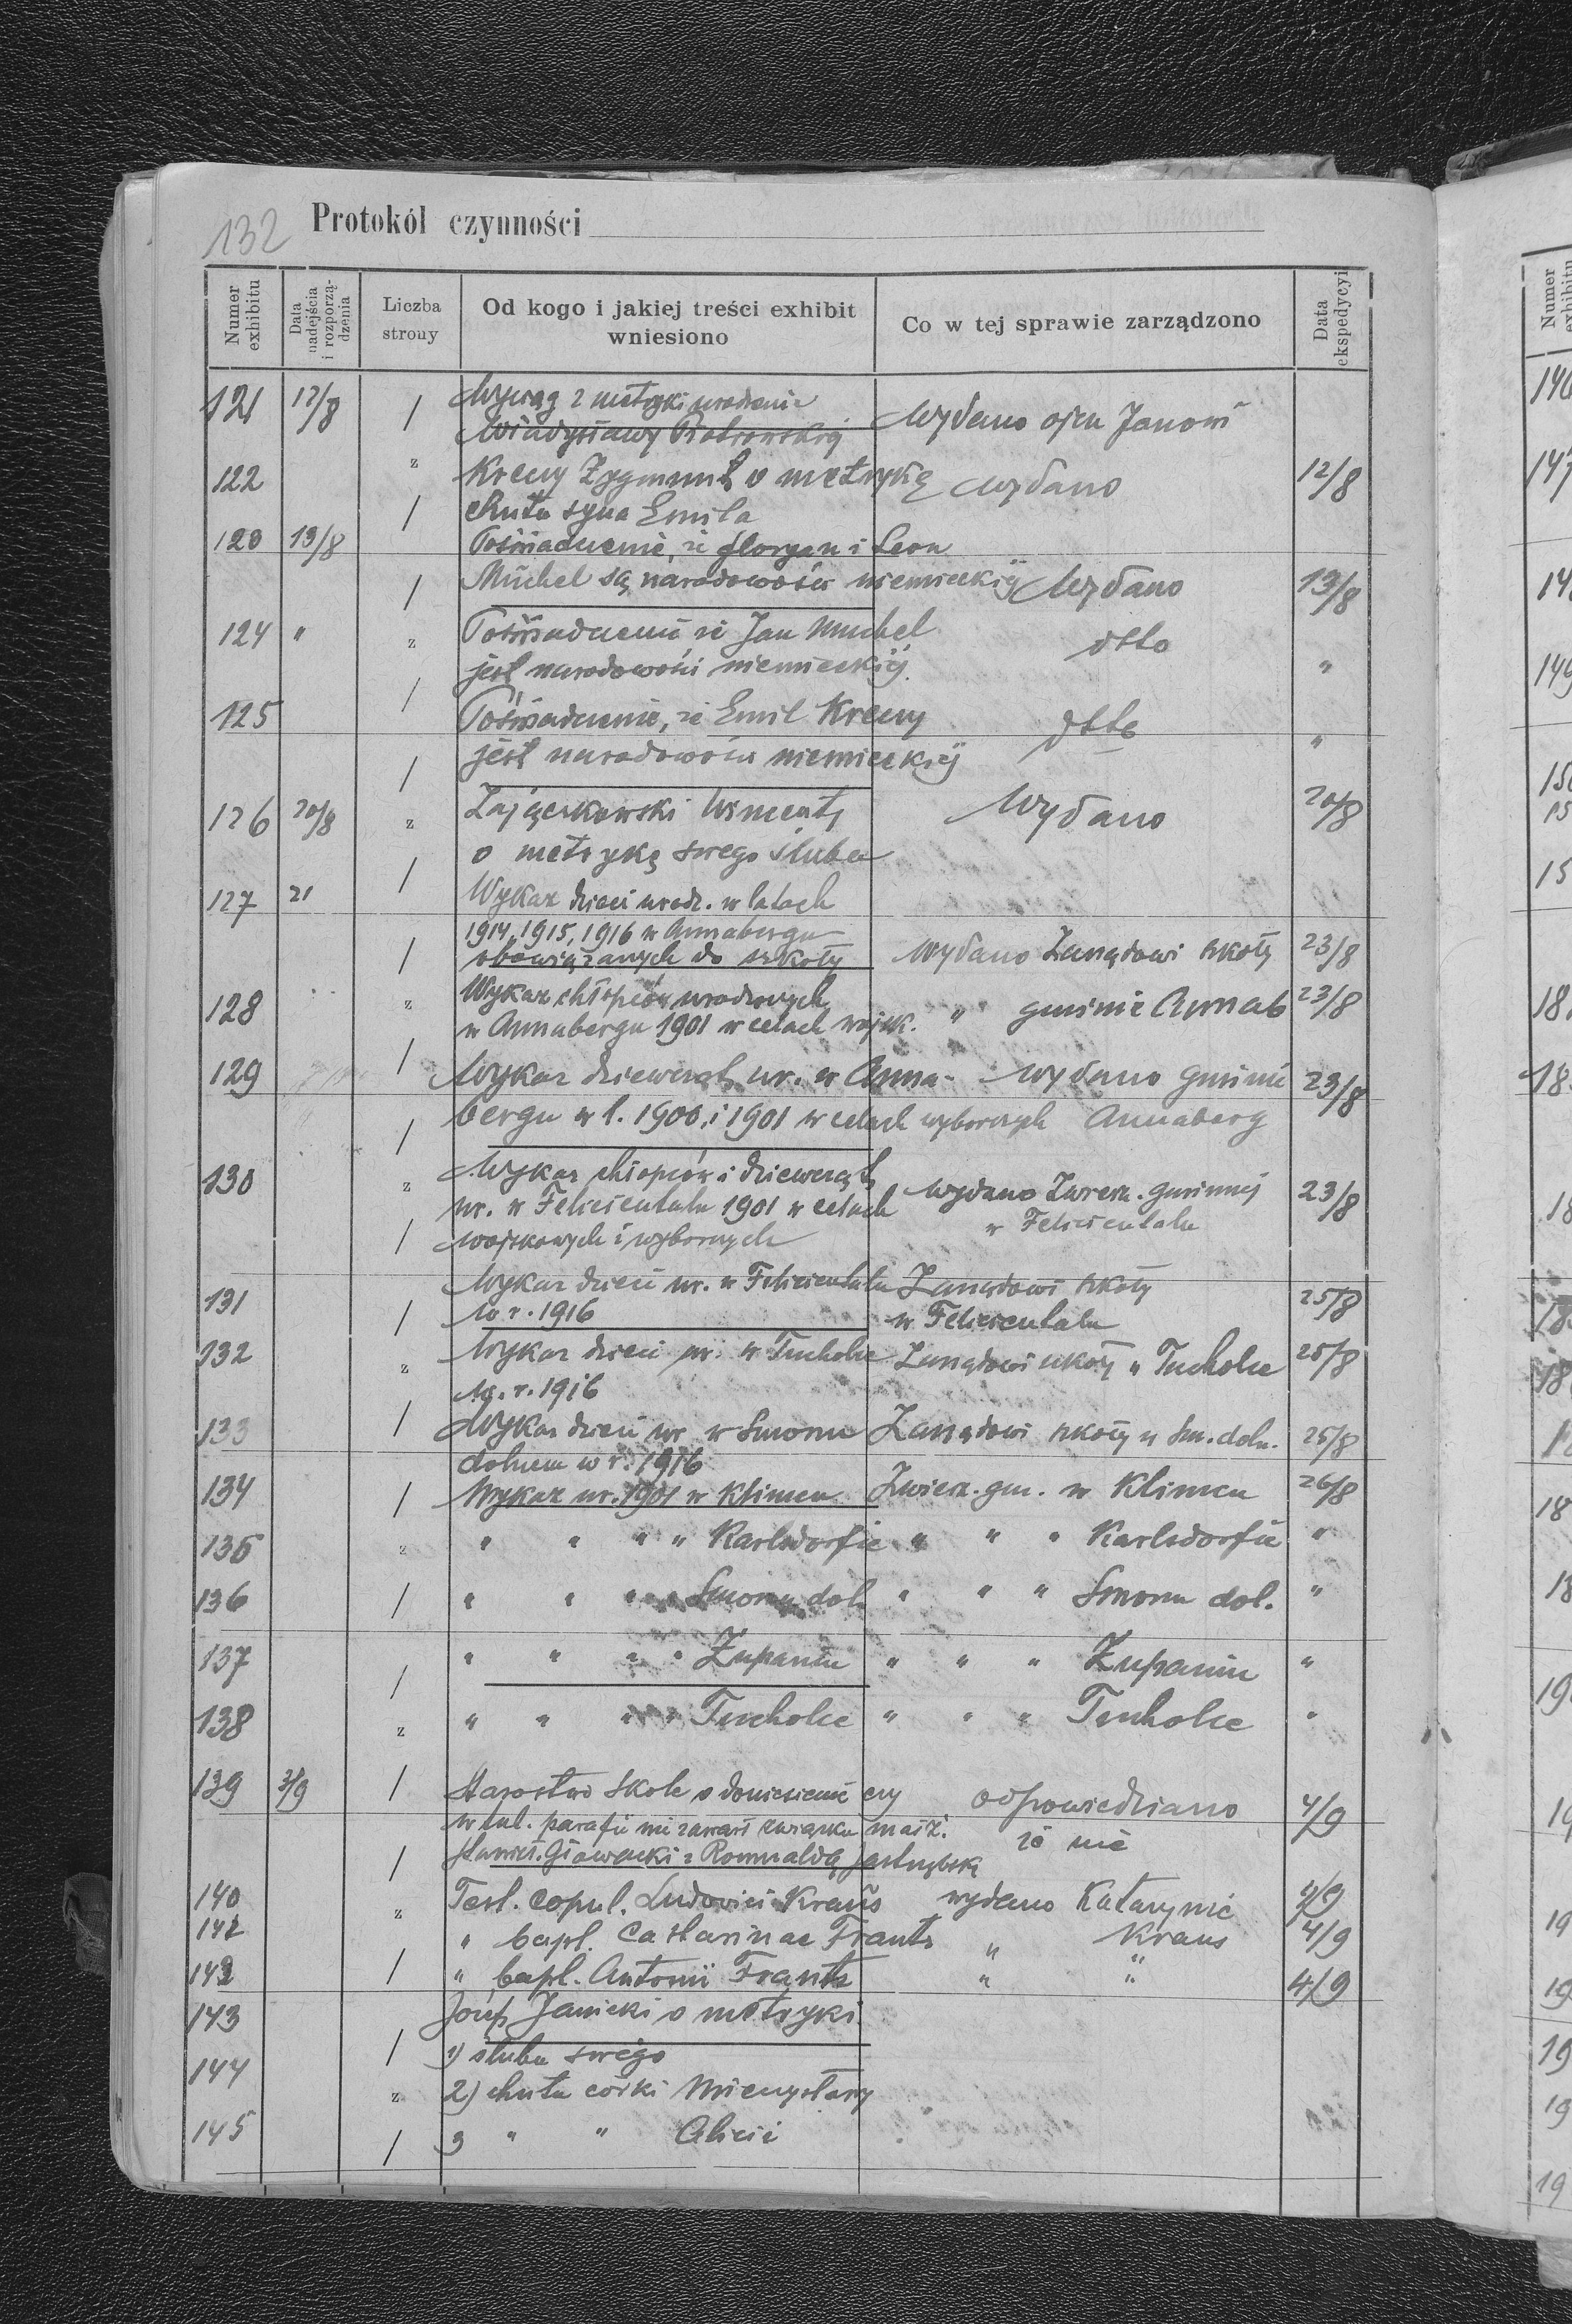 132 Protokół czynności
Numer exhibitu
Data nadejścia i rozporządzenia
Liczba strony
Od kogo i jakiej treści exhibit wniesiono
Co w tej sprawie zarządzono
Data ekspedycyi
121 12/8 Wyciąg z metryki urodzenia
Władysławy Piotrowskiej Wydano ojcu Janowi
122 Kreuy Zygmunt o metrykę wydano 12/8
chrztu syna Emila
123 13/8 Poświadczenie, że Floryan i Leon
Michel są narodowości niemieckiej Wydano 13/8
124 " Poświadczenie, że Jan Michel dtto
jest narodowości niemieckiej "
125 Poświadczenie, że Emil Kreuy dtto
jest narodowości niemieckiej "
126 20/8 Zajączkowski Wincenty Wydano 20/8
o metrykę swego ślubu
127 21 Wykaz dzieci urodz. w latach
1914, 1915, 1916 w Annabergu
obowiązanych do szkoły wydano Zarządowi szkoły 23/8
128 Wykaz chłopców urodzonych " gminie Annab 23/8
w Annabergu 1901 w celach wojsk.
129 Wykaz dziewcząt ur. w Anna- wydano gminie 23/8
bergu w l. 1900, i 1901 w celach wyborczych Annaberg
130 Wykaz chłopców i dziewcząt
ur. w Felicientalu 1901 w celach wydano Zwierz. gminnej 23/8
wojskowych i wyborczych w Felicientalu
131 Wykaz dzieci ur. w Felicientalu Zarządowi szkoły 25/8
w r. 1916 w Felicientalu
132 Wykaz dzieci ur. w Tucholce Zarządowi szkoły w Tucholce 25/8
w r. 1916
133 Wykaz dzieci ur w Smorzu Zarządowi szkoły w Sm. doln. 25/8
dolnem w r. 1916
134 Wykaz ur. 1901 w Klimcu Zwierz. gm. w Klimcu 26/8
135 " " " " Karlsdorfie " " " Karlsdorfie "
136 " " " " Smorzu dol. " " " Smorzu dol. "
137 " " " " Żupaniu " " " Żupaniu "
138 " " " " Tucholce " " " Tucholce "
139 3/9 Starostwo Skole o doniesienie czy odpowiedziano 4/9
w tut. parafii nie zawarł związku małż. że nie
Stanisł. Głowacki z Romualdą Jastrzębską
140 Test. copul. Ludovici Kraus wydano Katarzynie 4/9
141 " bapt. Catharinae Frantz " Kraus 4/9
142 " bapt. Antonii Frantz " " 4/9
143 Józef Janicki o metryki
1) ślubu swego
144 2) chrztu córki Mieczysławy
145 3 " " Alicii